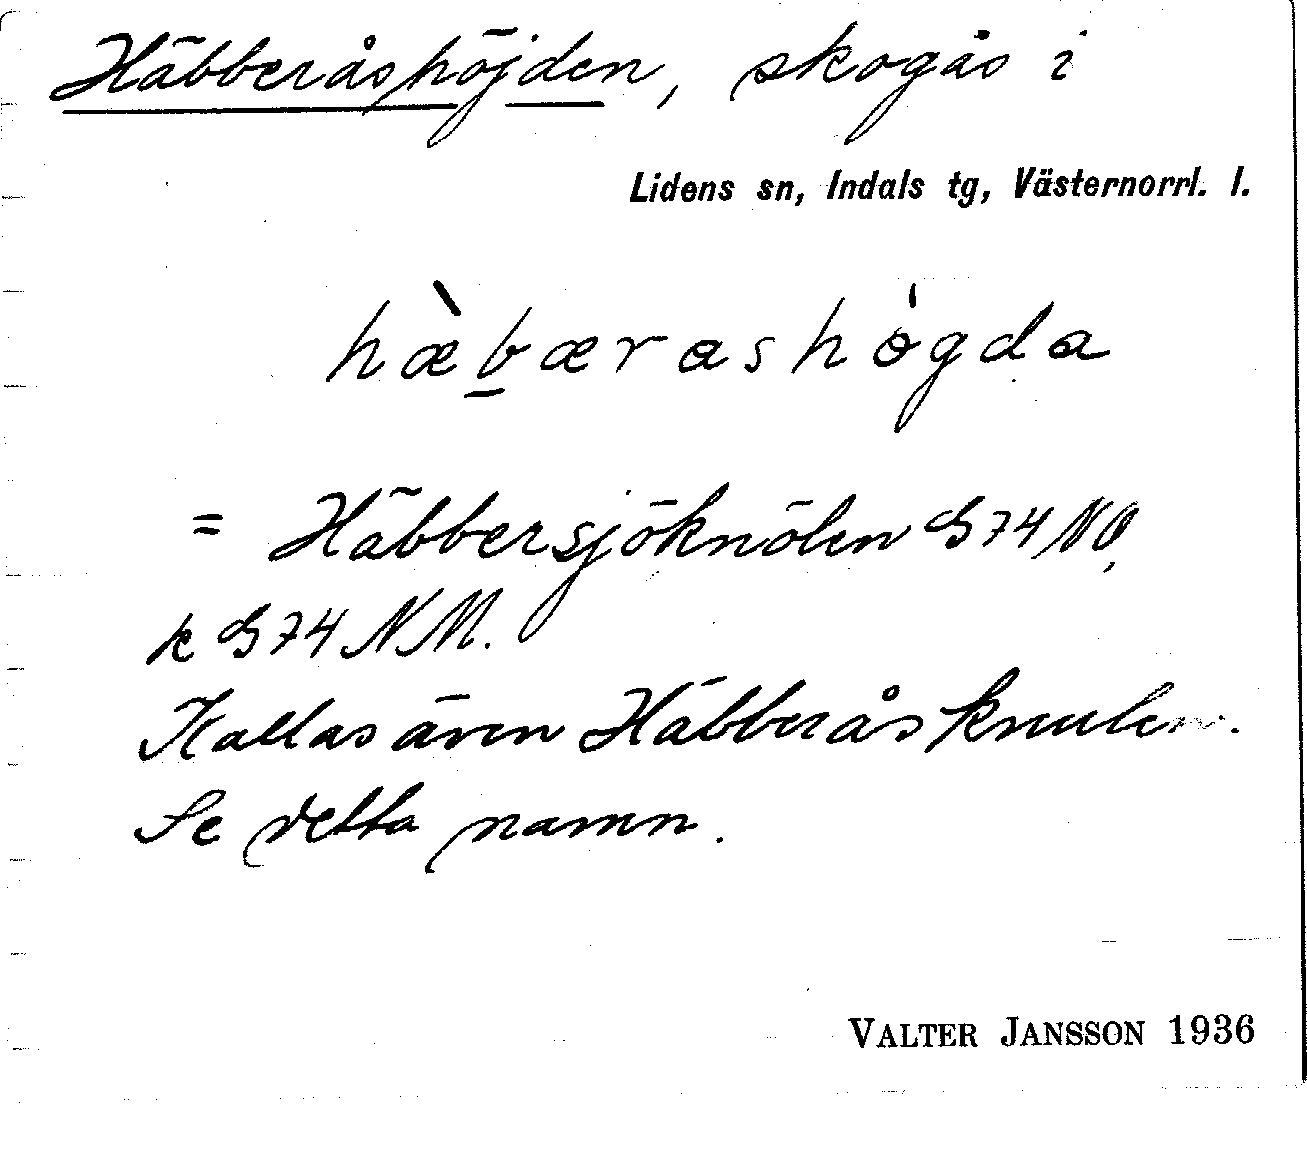 Häbberåshöjden, skogås i
Lidens sn, Indals tg, Västernorrl. l.
hæ̀b̲ærashögda
= Häbbersjöknölen G74 NO,
k G74 NM.
Kallas även Häbberåsknulen.
Se detta namn.
VALTER JANSSON 1936